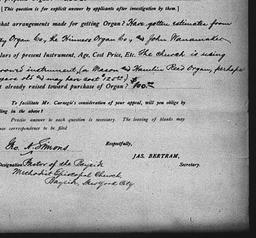 [This question is for explicit answer by applicants after investigation by them.]
hat arrangements made for getting Organ? Have gotten estimates from
y Organ Co, the Hinners Organ Co, and John Wanamaker
lars of present Instrument, Age, Cost Price, Etc. The Church is using
instrument, (a Mason and Hamlin Reed Organ, perhaps
years old and may have cost $
t already raised toward purchase of Organ? $
To facilitate Mr. Carnegie's consideration of your appeal, will you oblige by
ling in the above?
Precise answer to each question is necessary. The leaving of blanks may
use correspondence to be filed
Respectfully,
Geo. N. Simons
JAS. BERTRAM,
Secretary.
Designation Pastor of the Bayside
Methodist Episcopal Church
Bayside, New York City